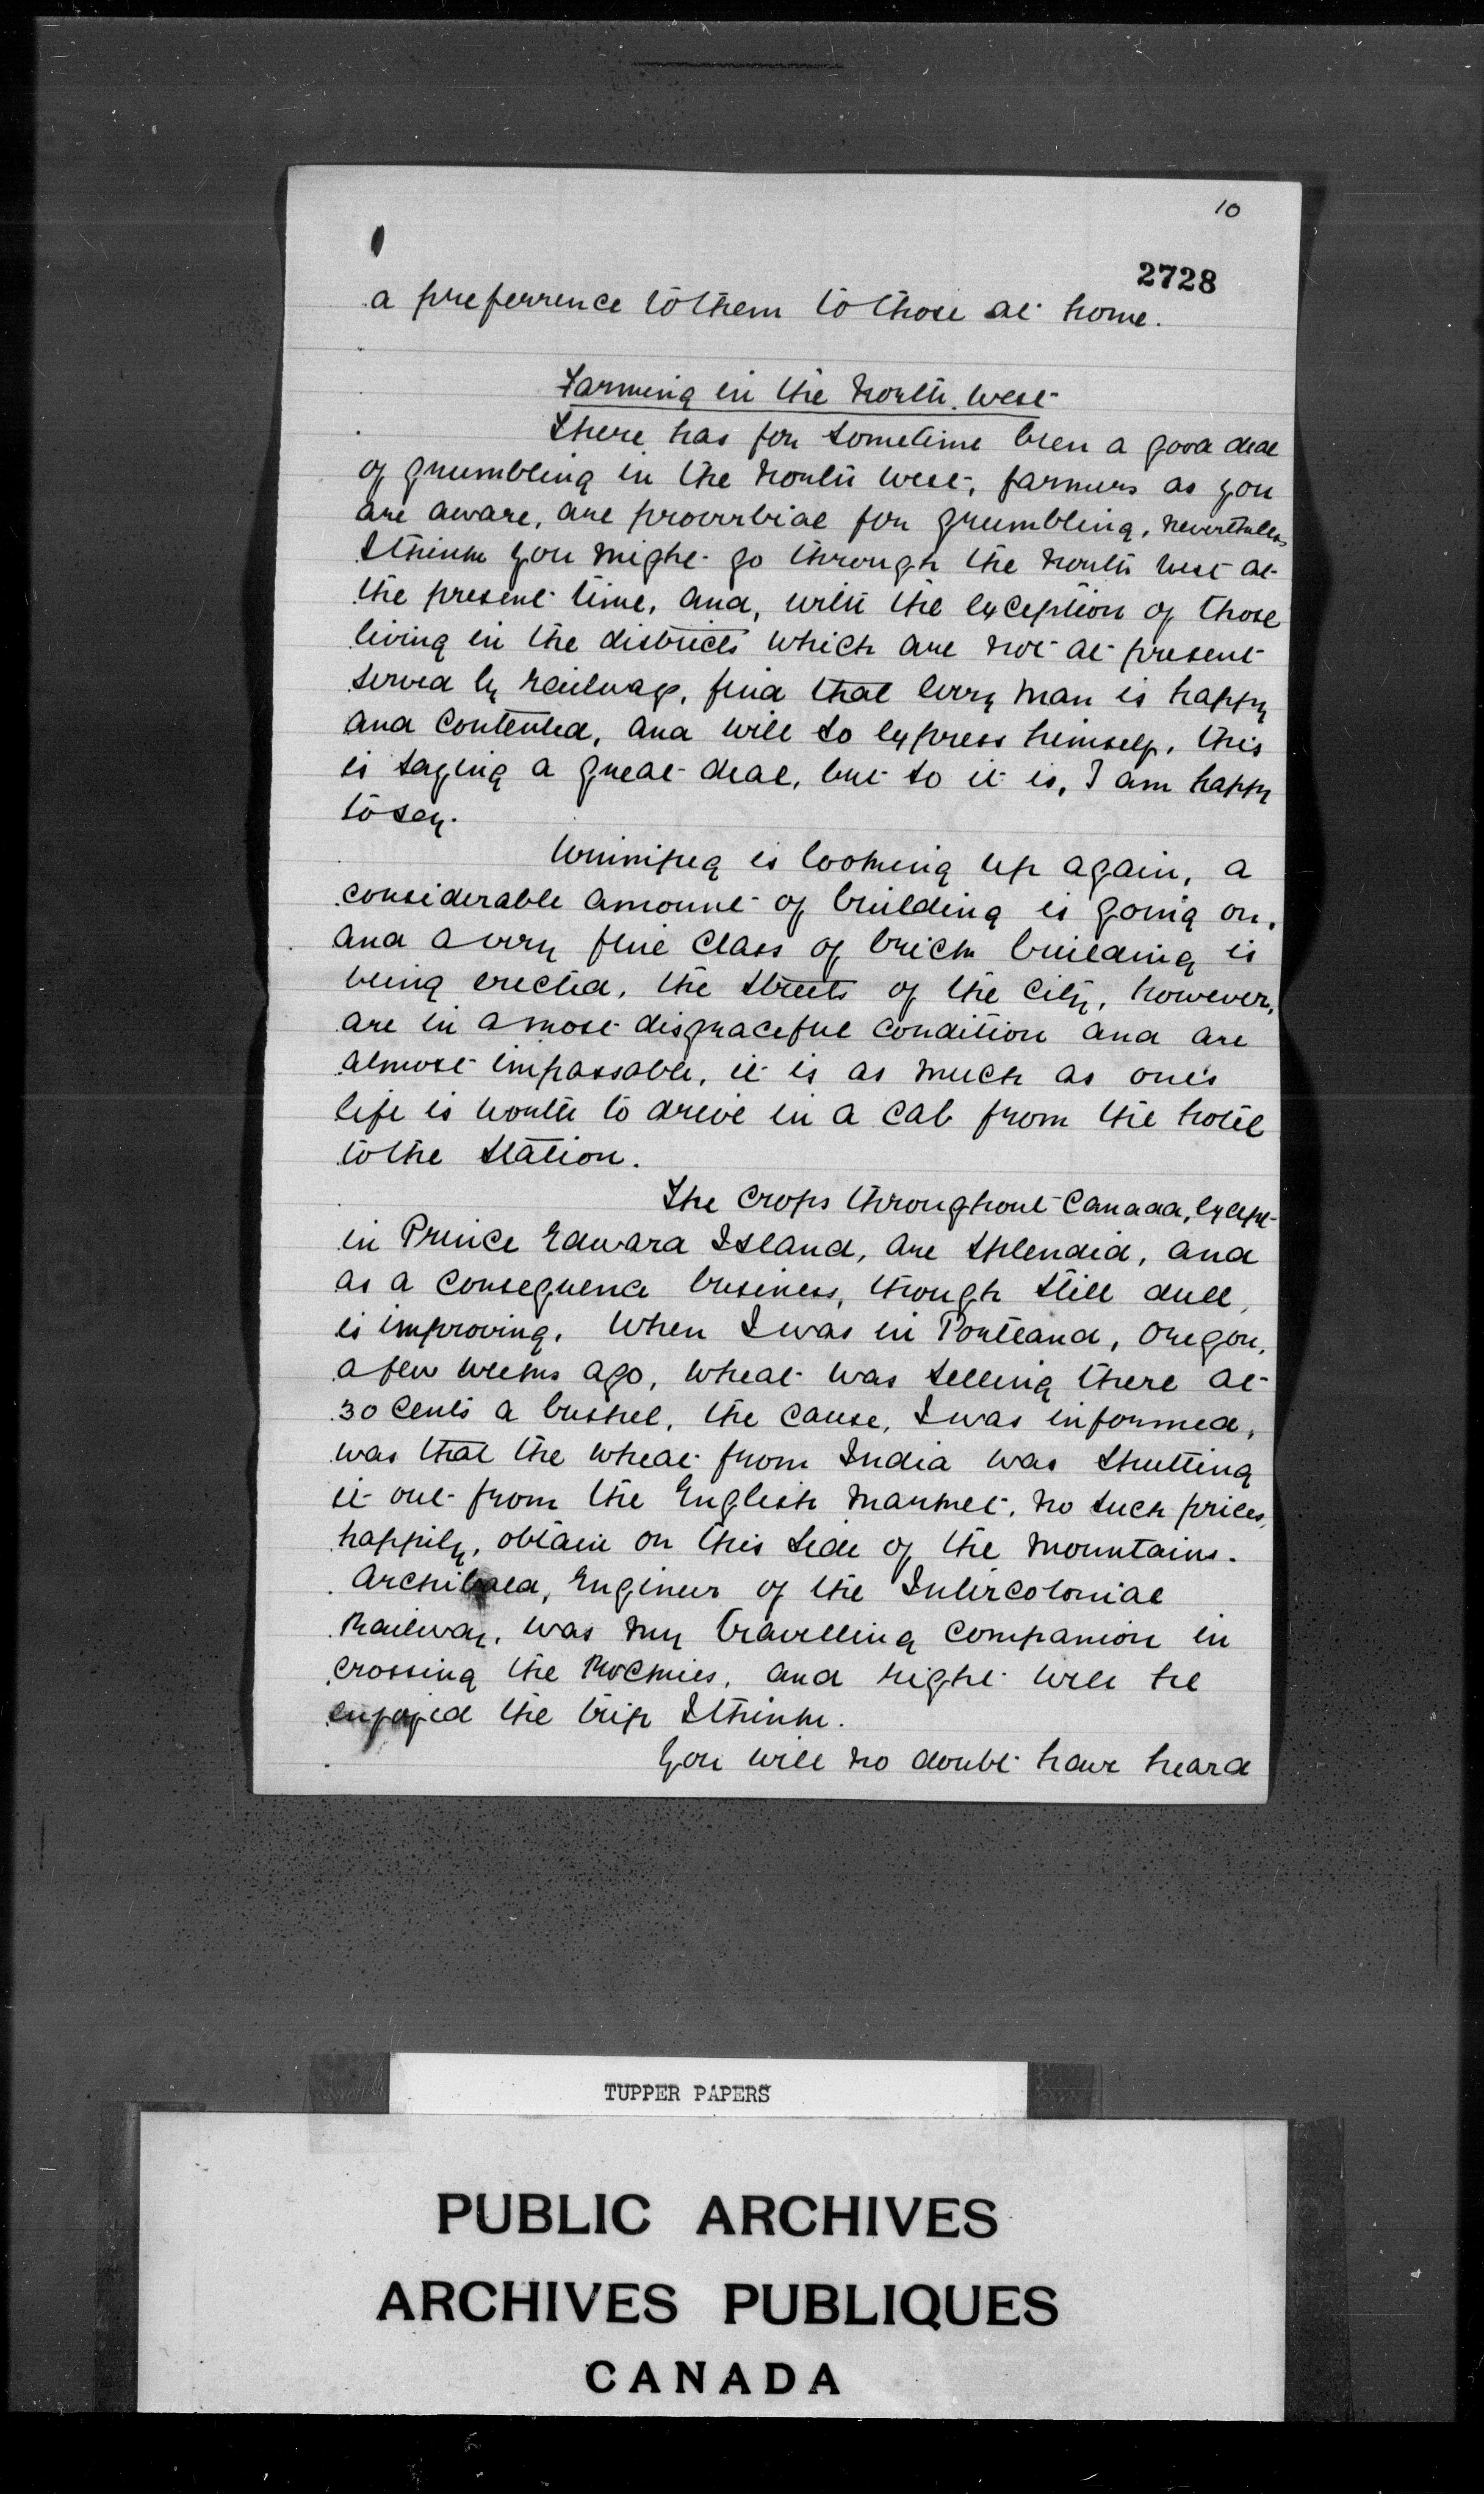 10
2728
a preferrence to them to those at home.
Farming in the North West
There has for sometime been a good deal
of grumbling in the North West, farmers as you
are aware, are proverbial for grumbling, nevertheless
I think you might go through the North West at
the present time, and, with the exception of those
living in the districts which are not at present
served by railways, find that every man is happy
and contented, and will so express himself, this
is saying a great deal, but so it is, I am happy
to say.
Winnipeg is looking up again, a
considerable amount of building is going on,
and a very fine class of brick building is
being erected, the streets of the city, however,
are in a most disgraceful condition and are
almost impassable, it is as much as one's
life is worth to drive in a cab from the hotel
to the station.
The crops throughout Canada, except
in Prince Edward Island, are splendid, and
as a consequence business, though still dull,
is improving. When I was in Portland, Oregon,
a few weeks ago, wheat was selling there at
30 cents a bushel, the cause, I was informed,
was that the wheat from India was shutting
it out from the English market, no such prices,
happily, obtain on this side of the mountains.
Archibald, Engineer of the Intercolonial
Railway, was my travelling companion in
crossing the Rockies, and right well he
enjoyed the trip I think.
You will no doubt have heard
TUPPER PAPERS
PUBLIC ARCHIVES
ARCHIVES PUBLIQUES
CANADA